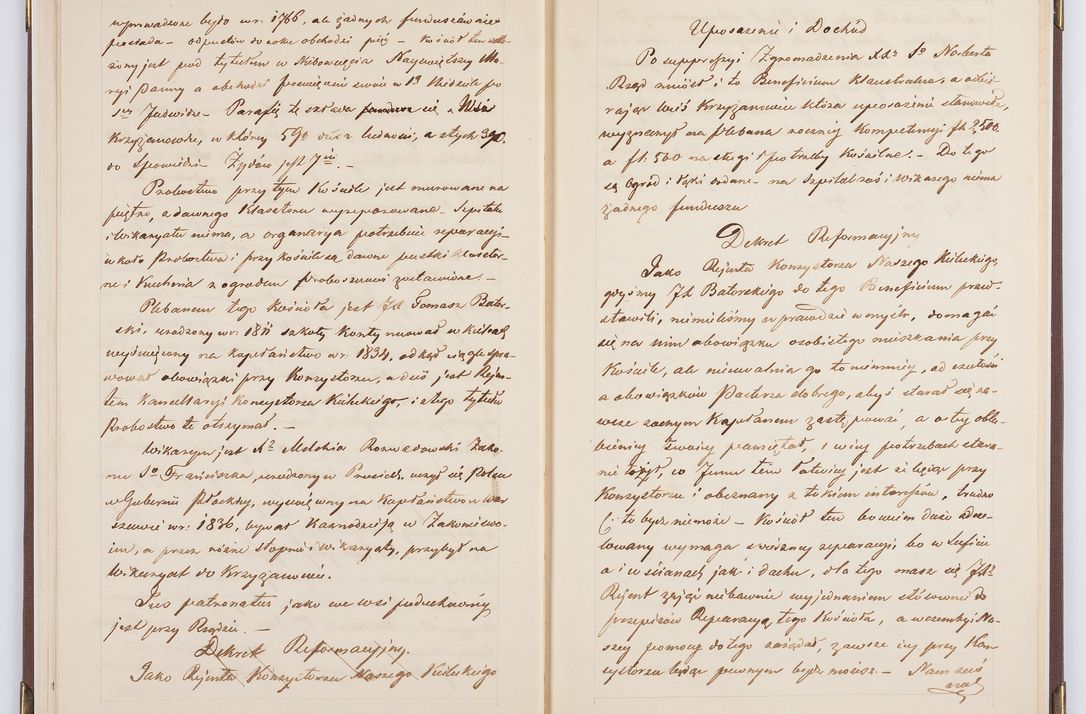 wprowadzone było w r: 1766, ale żadnych funduszów nie
posiada – odpustów do roku obchodzi pięć – Kościół ten
żony jest pod tytułem w Niebowzięcia Najświętszej Ma-
ryi Panny a obchodzi poświęcenie swoje w 13 Niedzielę po
Jadwidze – Parafia ta składa się z Wsi
Krzyżanowic, w której 590 dusz ludności, a z tych 390
do Spowiedzi – Żydów jest 7m –
Probostwo przy tym Kościele jest murowane na
piętro, z dawnego Klasztoru wyreperowane – Szpitala
i Wikaryatu niema, a organarya potrzebuje reperacyi –
w koło Probostwa i przy kościele są dawne pustki klasztor-
ne i Kuchnia z ogrodem proboszczowi zostawione. –
Plebanem tego Kościoła jest JX Tomasz Bator-
ski, urodzony w r: 1811 szkoły kontynuował w Kielcach
wyświęcony na kapłaństwo w r: 1834, odkąd ciągle spra-
wował obowiązki przy Konsystorzu, a dziś jest Rejen-
tem Kancellaryi Konsystorza Kieleckiego, i z tego tytułu
Probostwo te otrzymał. –
Wikarym jest X. Melchior Rozwadowski Zako-
nu So Franciszka, urodzony w Prusiech, uczył się
w Gubernii Płockiej, wyświęcony na Kapłaństwo w War-
szawie w r: 1836, bywał Kaznodzieją w Zakonie swo-
im, a przez różne stopnie i wikaryaty, przybył na
Wikaryat do Krzyżanowic.
Jus patronatus jako we wsi poduchownej
jest przy Rządzie. –
Dekret Reformacyjny.
Jako Rejenta Konsystorza Naszego Kieleckiego
Uposażenie i Dochód
Po suppressyi Zgromadzenia XX. So Norberta
Rząd zniósł i to Beneficium Klaustralne, a odbie-
rając wieś Krzyżanowice która uposażenie stanowiła,
wyznaczył na Plebana rocznej Kompetencyi fl: 2500.
a fl: 500 na sługi i potrzeby Kościelne. – Do tego
są Ogród i łąki oddane – na Szpital zaś i Wikarego niema
żadnego funduszu
Dekret Reformacyjny
Jako Rejenta Konsystorza Naszego Kieleckiego,
gdyśmy JX Batorskiego do tego Beneficium przed-
stawili, nie mieliśmy wprawdzie w myśli, domagać
się na nim obowiązku osobistego mieszkania przy
Kościele, ale nie uwalnia go to niemniej, od czułości
a obowiązków Pasterza dobrego, aby starał się za-
wsze zacnym Kapłanem zastępować, a o tej oblu-
bienicy swojej pamiętał, i w jej potrzebach stara-
nie łożył, co Jemu tem łatwiej jest iż będąc przy
Konsystorzu i obeznany z tokiem interessów, trudno
to być nie może – Kościół ten bowiem dużo
lowany wymaga reparacyi bo w Suficie
a i w ścianach jak i dachu, dla tego masz się JX
Rejent zająć niebawnie wyjednaniem stosownie do
przepisów Reparacyą tego Kościoła, a wszelkiej Na-
szej pomocy do tego zażądać, zawsze jej przy Kon
systorzu będąc pewnym być możesz. – Nam zaś